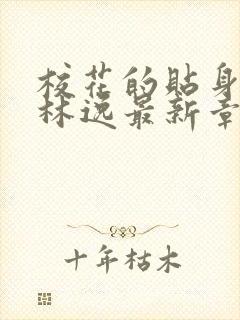 校花的贴身
林逸最新章
十年枯木